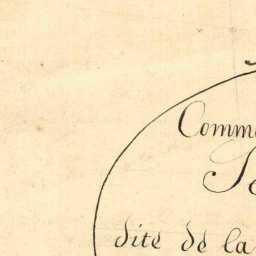 Comm
dite de la